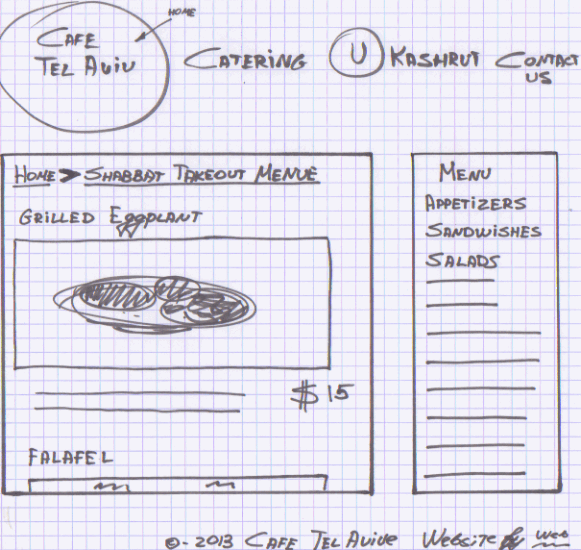 HOME
CAFE
TEL AVIV
CATERING
U
KASHRUT
CONTACT
US
HOME > SHABBAT TAKEOUT MENUE
GRILLED EGGPLANT
$15
FALAFEL
MENU
APPETIZERS
SANDWISHES
SALADS
©-2013 CAFE TEL AVIVE WEBSITE by WEB